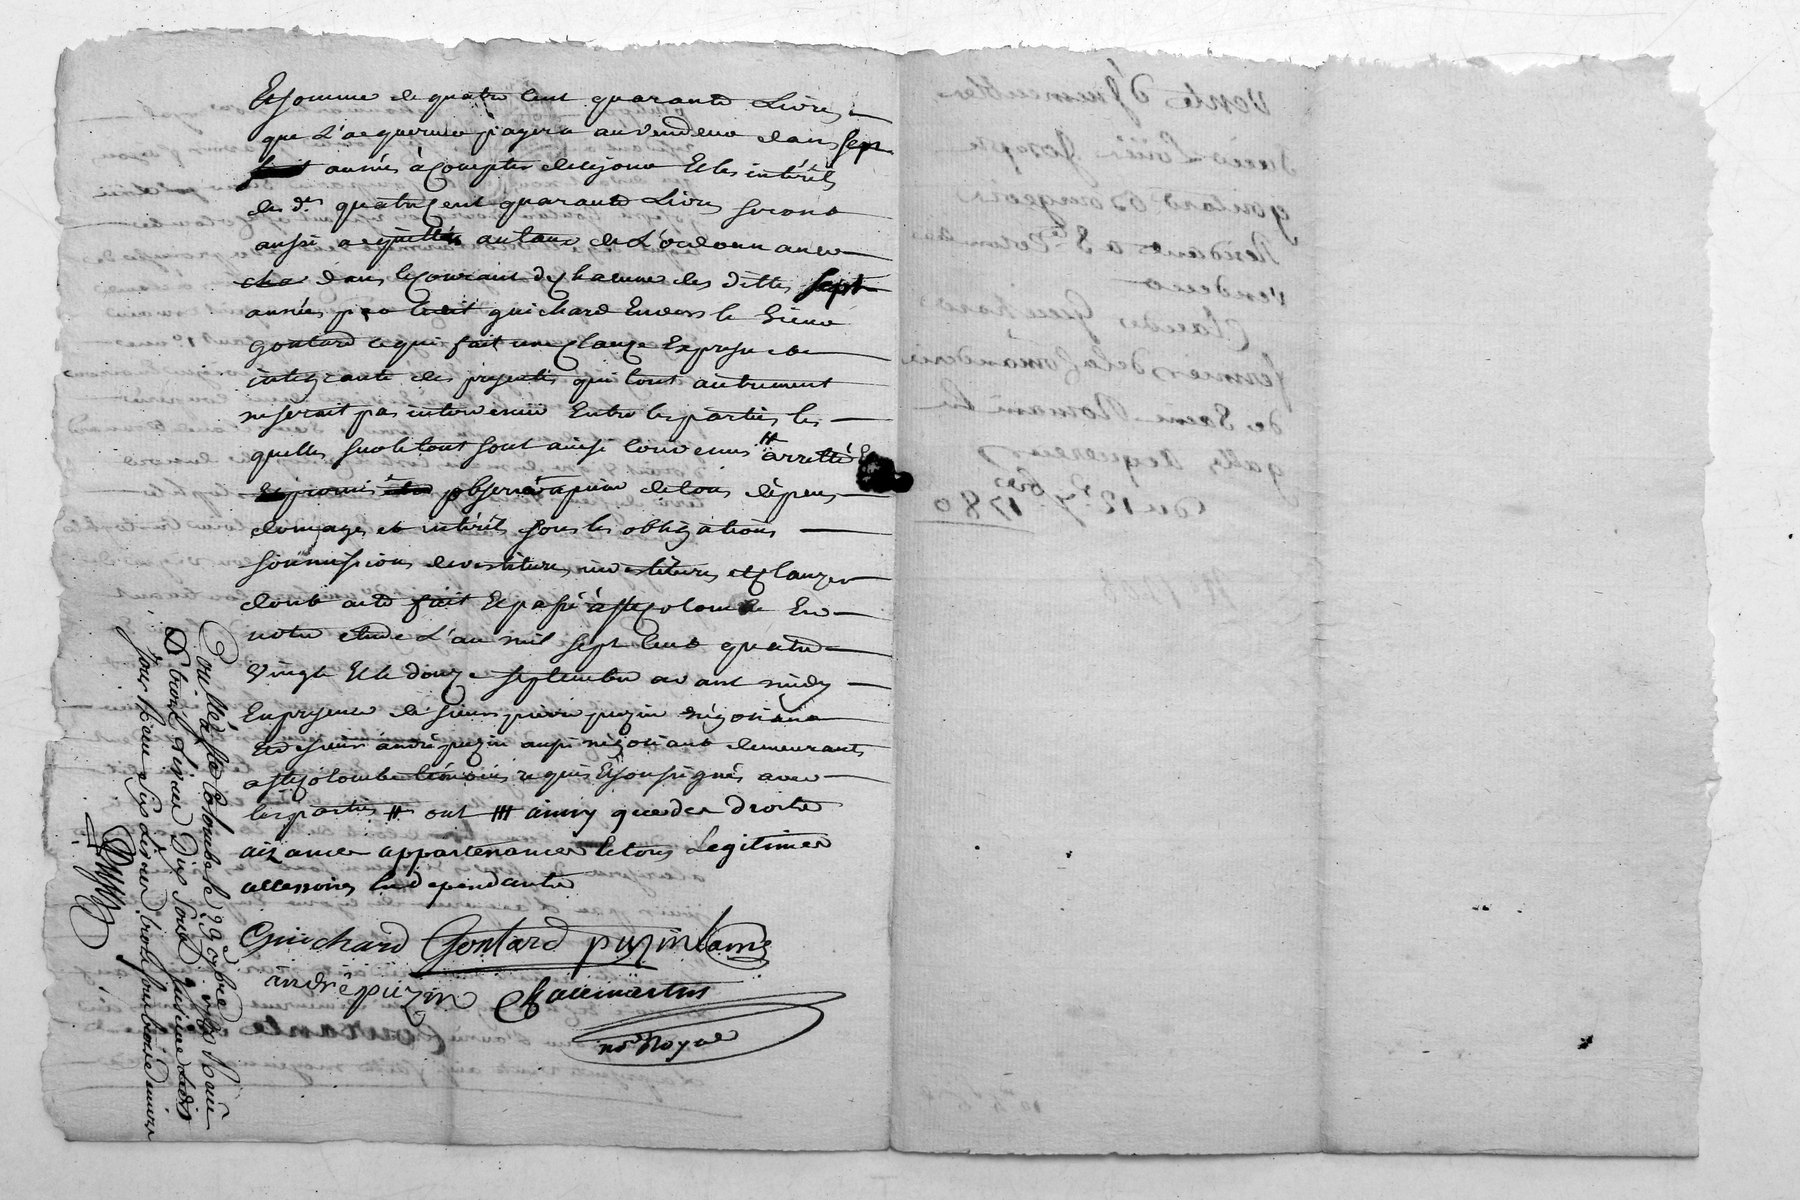 Et somme de quatre Cent quarante Livres
que L'acquereur payera au vendeur dans sept
années à Compter de ce jour Et les intérêts
des d.es quatre Cent quarante Livres seront
aussi acquittés au taux de L'ordonnance
dans le Courant de Chacune des dittes sept
années par ledit guichard Envers le Sieur
goutard ce qui fait une Clauze Expresse et
integrante des presentes qui tout autrement
ne serait pas intervenuë Entre les parties les
quelles sur le tout sont ainsi Convenus # arretté Et
promis observer à peine de tous dépens
domages et intérêts sous les obligations
soumissions devestitures investitures et Clauzes
dont acte fait Et passé à Ste Colombe En
notre etude L'an mil sept Cent quatre
Vingt Et le douze septembre avant midy
En presence de sieur pierre puzin négotiant
Et de sieur andré puzin aussi négotiant demeurants
a Ste Colombe témoins requis Et soussignés avec
les parties # ont ### ainsy que des droits
aizances appartenances Et tous Legitimes
accessoires En dependants
Guichard Goutard puzin lainé
andré puzin
no.re Royal
Conllé à Ste Colombe le 22 7bre
Dix Sous
Vente d'Immeubles
Sieur Loüis Joseph
goutard Bourgeois
Residant a Ste Colombe
vendeur
a
Claude Guichard
fermier de la Comanderie
de Saint Romain En
galle Acquereur
du 12e 7bre 1780